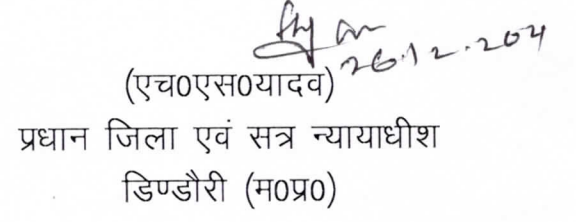 26.12.204
(एच0एस0यादव)
प्रधान जिला एवं सत्र न्यायाधीश
डिण्डौरी (म0प्र0)